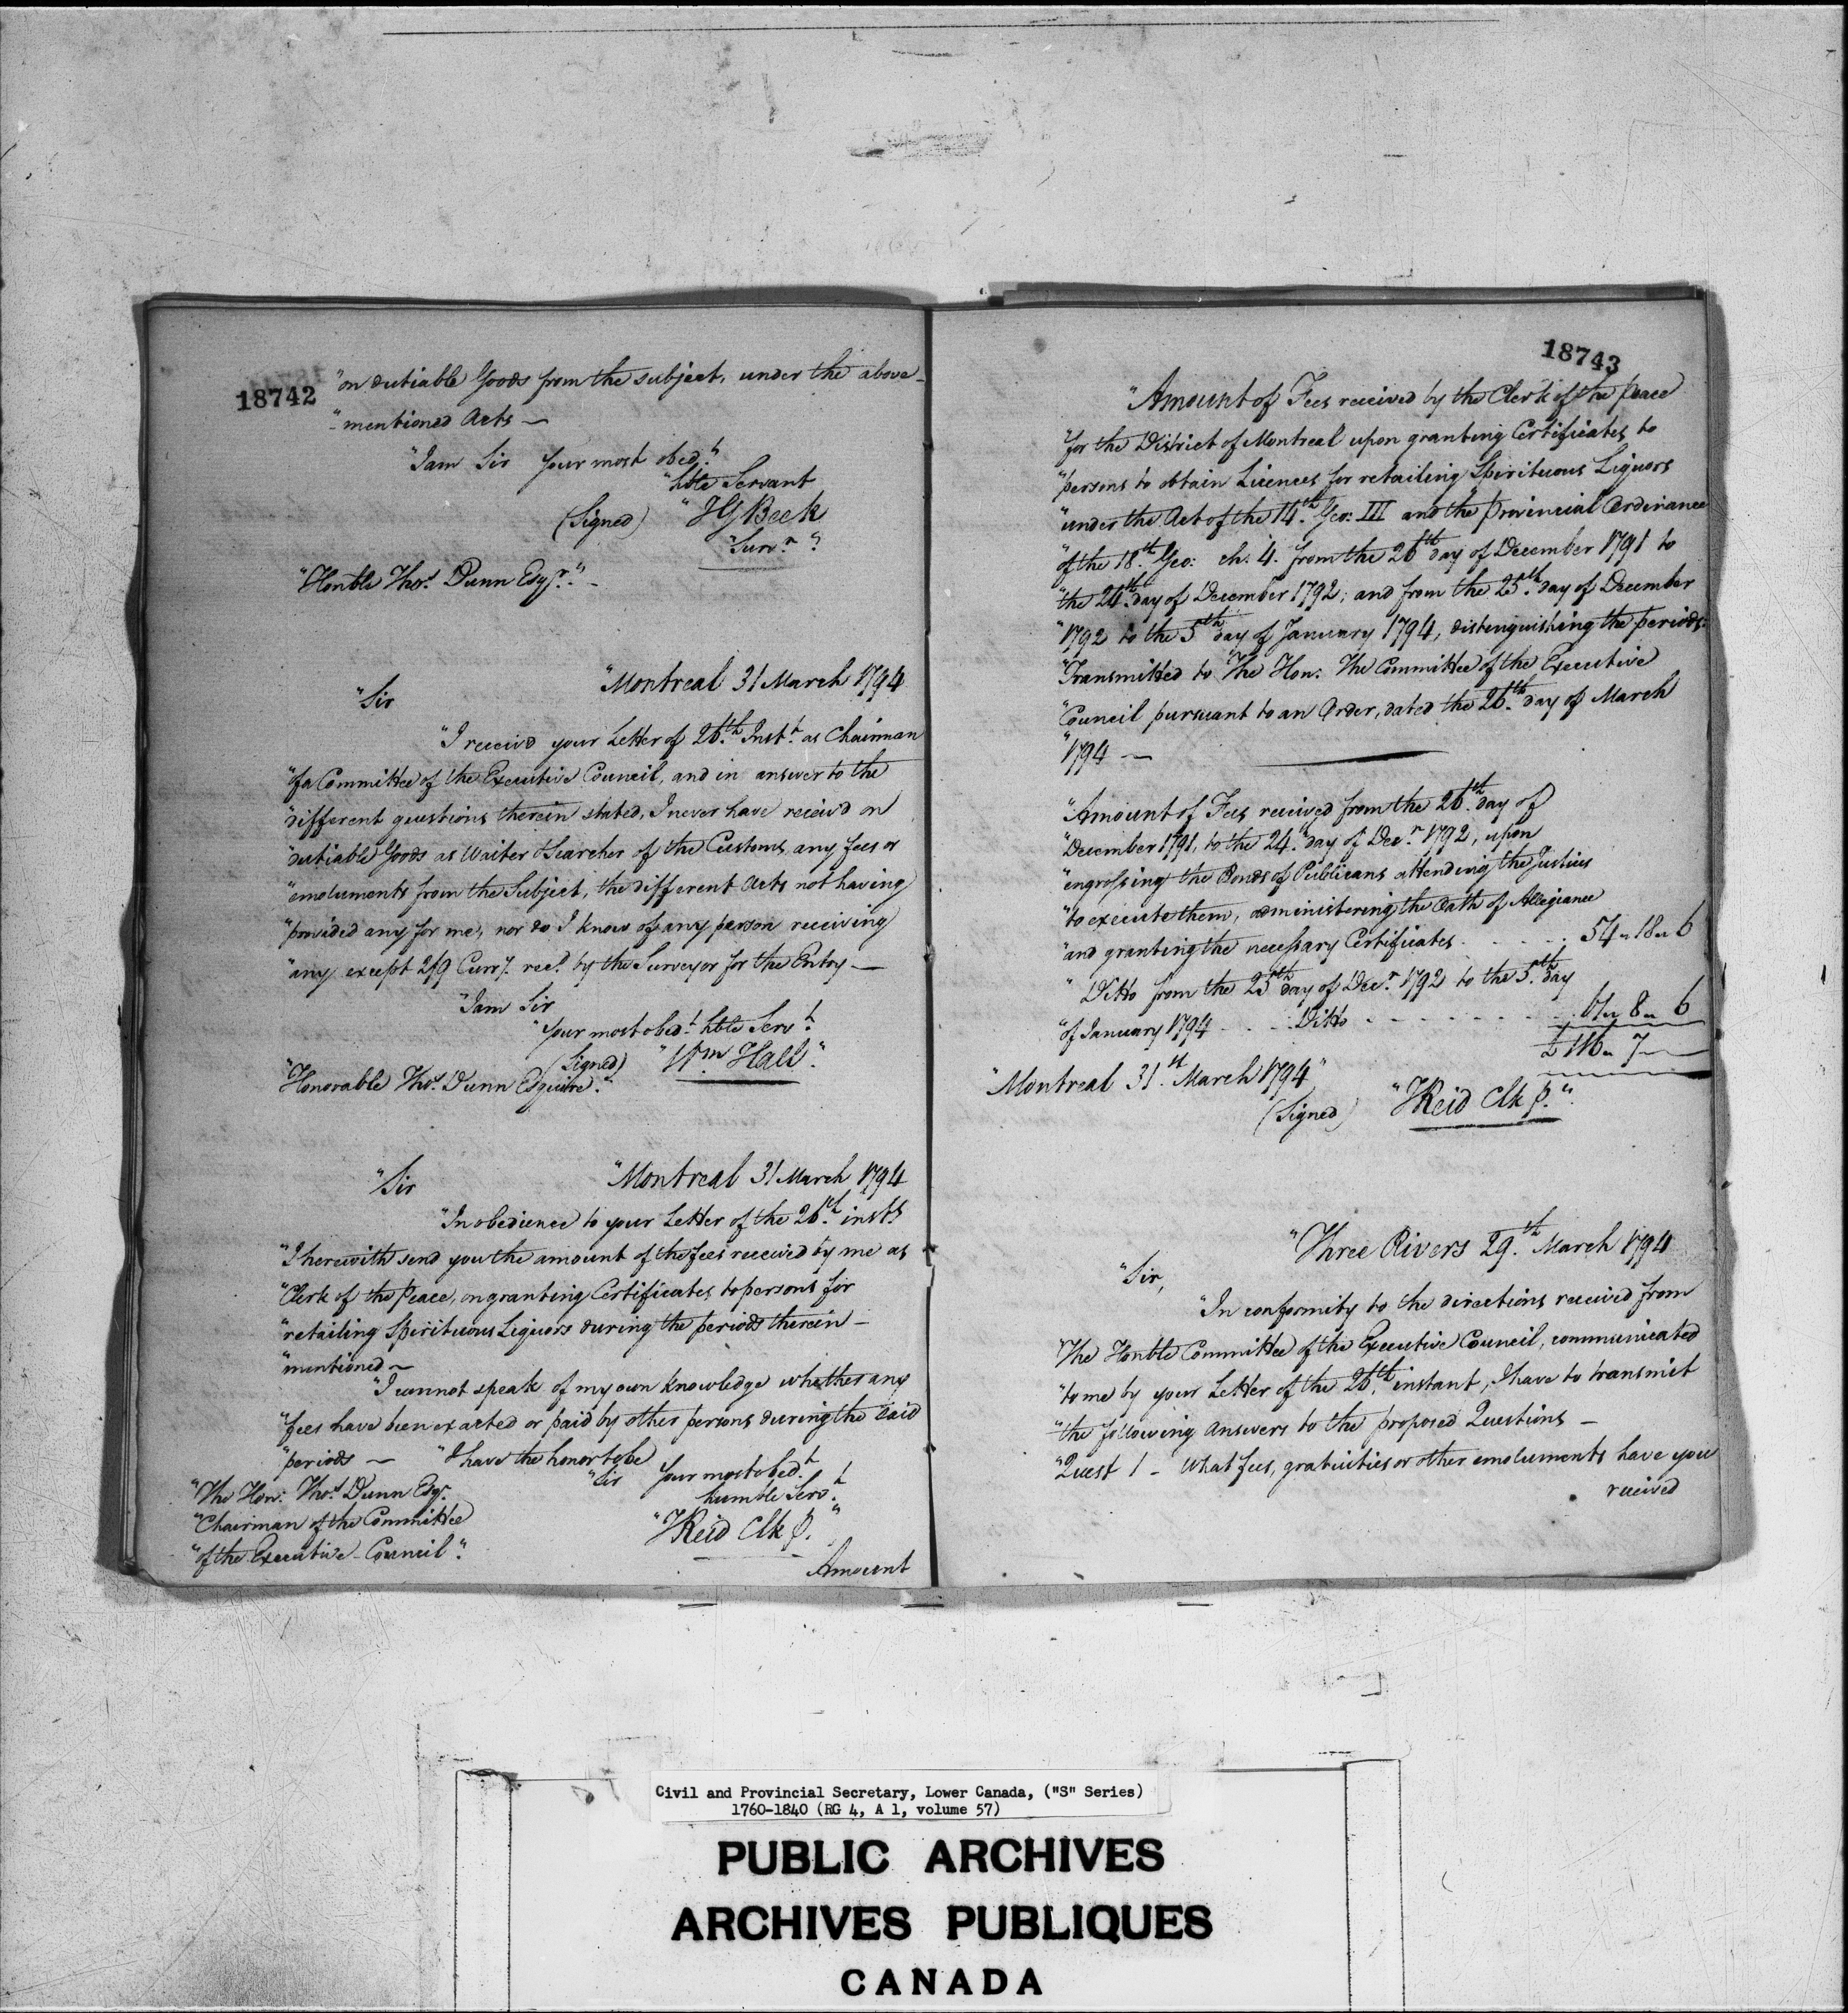 18742
"on dutiable Goods from the subject, under the above-
"mentioned Acts —
"I am Sir Your most obed.t
"hble Servant
(Signed) "JG Beek
"Surv.r"
"Honble Tho.s Dunn Esq.r" -
"Montreal 31 March 1794
"Sir
"I receiv'd your Letter of 26.th Inst.t as Chairman
"of a Committee of the Executive Council, and in answer to the
"different questions therein stated, I never have receiv'd on
"dutiable Goods as Waiter & Searcher of the Customs any fees or
"emoluments from the Subject, the different Acts not having
"provided any for me, nor do I know of any person receiving
"any except 2/9 Curr.y rec.d by the Surveyor for the Entry —
"I am Sir
"Your most obed.t hble Serv.t
(Signed) "W.m Hall".
"Honorable Tho.s Dunn Esquire".
"Montreal 31 March 1794
"Sir
"In obedience to your Letter of the 26.th inst.t
"I herewith send you the amount of the fees received by me as
"Clerk of the Peace, on granting Certificates to persons for
"retailing Spirituous Liquors during the periods therein -
"mentioned —
"I cannot speak of my own knowledge whether any
"fees have been exacted or paid by other persons during the said
"periods — "I have the honor to be
"Sir Your most obed.t
humble Serv.t
"The Hon: Tho.s Dunn Esq.r
"Chairman of the Committee
"of the Executive Council".
"JReid Clk P."
Amount
18743
"Amount of Fees received by the Clerk of the Peace
"for the District of Montreal upon granting Certificates to
"persons to obtain Licences for retailing Spirituous Liquors
"under the Act of the 14.th Geo: III and the Provincial Ordinance
"of the 18.th Geo: ch. 4. from the 26th day of December 1791 to
"the 24.th day of December 1792; and from the 25.th day of December
"1792 to the 5th day of January 1794, distinguishing the periods:
"Transmitted to The Hon: The Committee of the Executive
"Council pursuant to an Order, dated the 26.th day of March
"1794 —
"Amount of Fees received from the 26.th day of
"December 1791, to the 24.th day of Dec.r 1792, upon
"engrossing the Bonds of Publicans attending the Justices
"to execute them, administering the Oath of Allegiance
"and granting the necessary Certificates . . . . . 54 " 18 " 6
" Ditto from the 25th day of Dec.r 1792 to the 5.th day
"of January 1794 . . . Ditto - - - - - - - - 61 " 8 " 6
£ 116 " 7 —
"Montreal 31.st March 1794"
(Signed) "JReid Clk P.".
"Three Rivers 29.th March 1794
"Sir,
"In conformity to the directions received from
"The Honble Committee of the Executive Council, communicated
"to me by your Letter of the 26.th instant, I have to transmit
"the following answers to the proposed Questions —
"Quest 1 - What fees, gratuities or other emoluments have you
received
Civil and Provincial Secretary, Lower Canada, ("S" Series)
1760-1840 (RG 4, A 1, volume 57)
PUBLIC ARCHIVES
ARCHIVES PUBLIQUES
CANADA